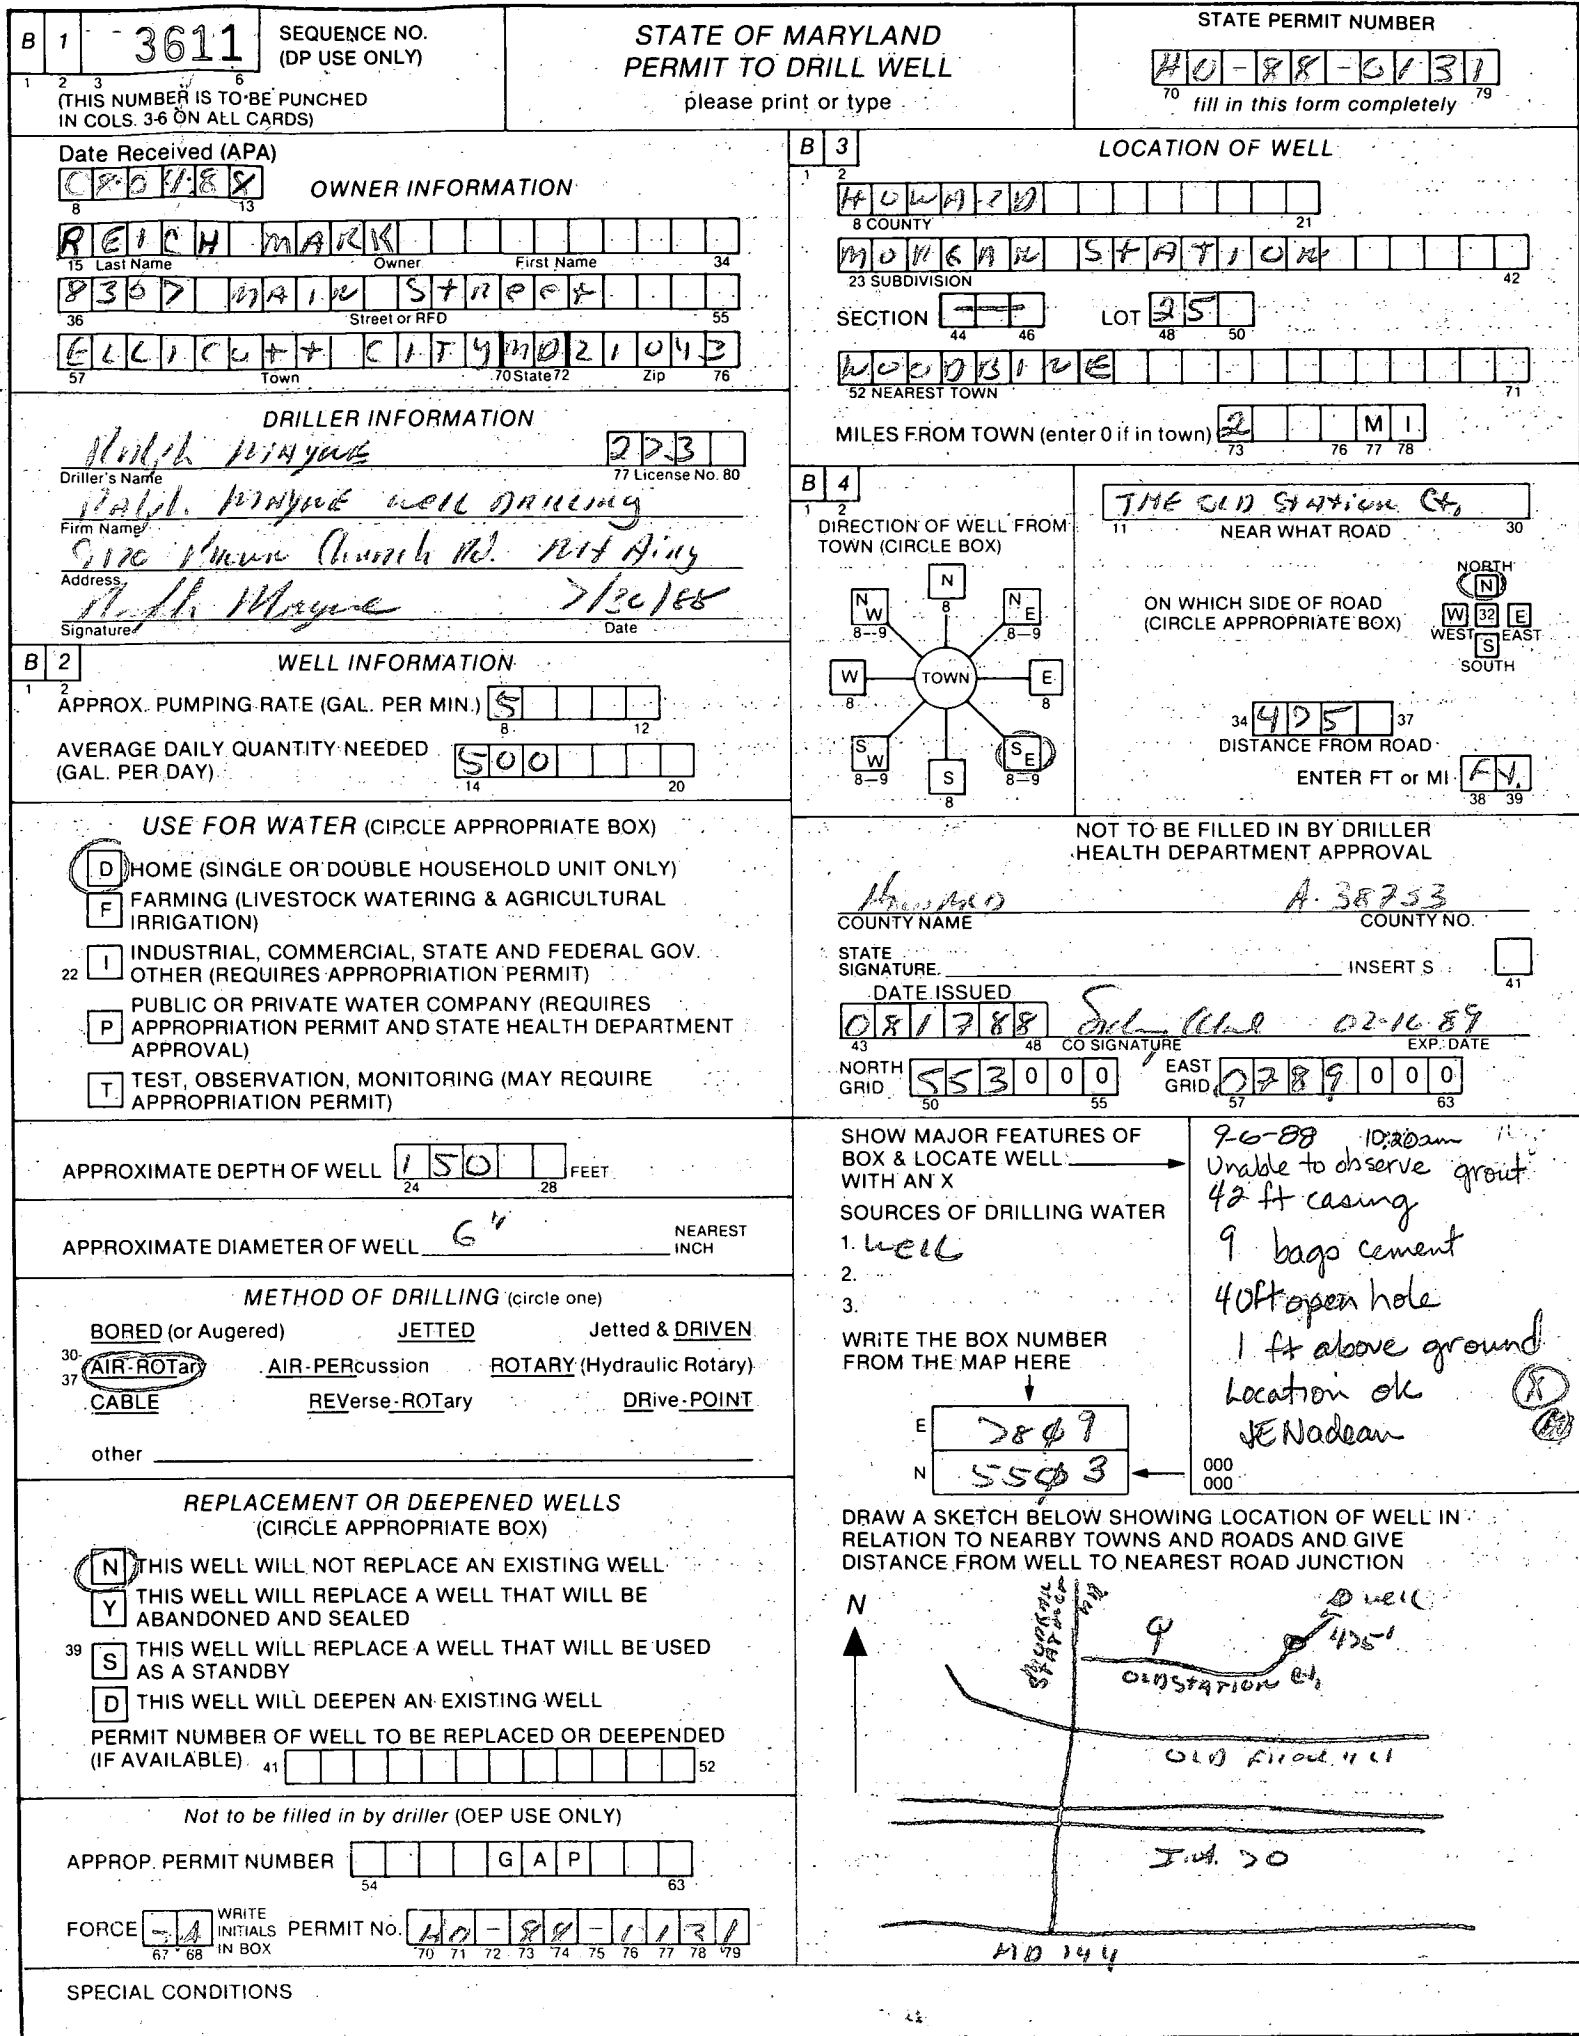 B 1 3611 SEQUENCE NO.
(DP USE ONLY)
1 2 3 6
(THIS NUMBER IS TO BE PUNCHED
IN COLS. 3-6 ON ALL CARDS)
STATE OF MARYLAND
PERMIT TO DRILL WELL
please print or type
STATE PERMIT NUMBER
HO-88-0131
70 79
fill in this form completely
Date Received (APA)
8 13
OWNER INFORMATION
REICH MARK
15 Last Name Owner First Name 34
8307 MAIN Street
36 Street or RFD 55
ELLICOTT CITY MD 21043
57 Town 70 State 72 Zip 76
DRILLER INFORMATION
Ralph Mayne 273
Driller's Name 77 License No. 80
Ralph Mayne Well Drilling
Firm Name
Church Rd. Mt Airy
Address
Ralph Mayne 7/30/88
Signature Date
B 2 WELL INFORMATION
1 2
APPROX. PUMPING RATE (GAL. PER MIN.) 5
8 12
AVERAGE DAILY QUANTITY NEEDED
(GAL. PER DAY) 500
14 20
USE FOR WATER (CIRCLE APPROPRIATE BOX)
D HOME (SINGLE OR DOUBLE HOUSEHOLD UNIT ONLY)
F FARMING (LIVESTOCK WATERING & AGRICULTURAL
IRRIGATION)
22 I INDUSTRIAL, COMMERCIAL, STATE AND FEDERAL GOV.
OTHER (REQUIRES APPROPRIATION PERMIT)
P PUBLIC OR PRIVATE WATER COMPANY (REQUIRES
APPROPRIATION PERMIT AND STATE HEALTH DEPARTMENT
APPROVAL)
T TEST, OBSERVATION, MONITORING (MAY REQUIRE
APPROPRIATION PERMIT)
APPROXIMATE DEPTH OF WELL 150 FEET
24 28
APPROXIMATE DIAMETER OF WELL 6" NEAREST
INCH
METHOD OF DRILLING (circle one)
BORED (or Augered) JETTED Jetted & DRIVEN
30-
37 AIR-ROTary AIR-PERcussion ROTARY (Hydraulic Rotary)
CABLE REVerse-ROTary DRive-POINT
other
REPLACEMENT OR DEEPENED WELLS
(CIRCLE APPROPRIATE BOX)
N THIS WELL WILL NOT REPLACE AN EXISTING WELL
Y THIS WELL WILL REPLACE A WELL THAT WILL BE
ABANDONED AND SEALED
39 S THIS WELL WILL REPLACE A WELL THAT WILL BE USED
AS A STANDBY
D THIS WELL WILL DEEPEN AN EXISTING WELL
PERMIT NUMBER OF WELL TO BE REPLACED OR DEEPENED
(IF AVAILABLE) 41 52
Not to be filled in by driller (OEP USE ONLY)
APPROP. PERMIT NUMBER G A P
54 63
FORCE WRITE
INITIALS
IN BOX PERMIT No. HO-88-1131
67 68 70 71 72 73 74 75 76 77 78 79
SPECIAL CONDITIONS
B 3 LOCATION OF WELL
1 2
HOWARD
8 COUNTY 21
MORGAN STATION
23 SUBDIVISION 42
SECTION LOT 25
44 46 48 50
WOODBINE
52 NEAREST TOWN 71
MILES FROM TOWN (enter 0 if in town) 2 M I
73 76 77 78
B 4
1 2
DIRECTION OF WELL FROM
TOWN (CIRCLE BOX)
N
8
NW NE
8-9 8-9
W TOWN E
8 8
SW SE
8-9 S 8-9
8
THE OLD Station Ct.
11 NEAR WHAT ROAD 30
ON WHICH SIDE OF ROAD
(CIRCLE APPROPRIATE BOX)
NORTH
N
W 32 E
WEST EAST
S
SOUTH
34 475 37
DISTANCE FROM ROAD
ENTER FT or MI Ft.
38 39
NOT TO BE FILLED IN BY DRILLER
HEALTH DEPARTMENT APPROVAL
Howard A-38753
COUNTY NAME COUNTY NO.
STATE
SIGNATURE INSERT S
41
DATE ISSUED
081788 02-16-89
43 48 CO SIGNATURE EXP. DATE
NORTH
GRID 553000 EAST
GRID 0789000
50 55 57 63
SHOW MAJOR FEATURES OF
BOX & LOCATE WELL
WITH AN X
SOURCES OF DRILLING WATER
1. Well
2.
3.
WRITE THE BOX NUMBER
FROM THE MAP HERE
E 7809
N 5503
9-6-88 10:20am
Unable to observe grout
42 ft casing
9 bags cement
40ft open hole
1 ft above ground
Location ok
JE Nadeau
000
000
DRAW A SKETCH BELOW SHOWING LOCATION OF WELL IN
RELATION TO NEARBY TOWNS AND ROADS AND GIVE
DISTANCE FROM WELL TO NEAREST ROAD JUNCTION
N
well
475'
OLD STATION Ct,
OLD
I.H. 70
MD 144